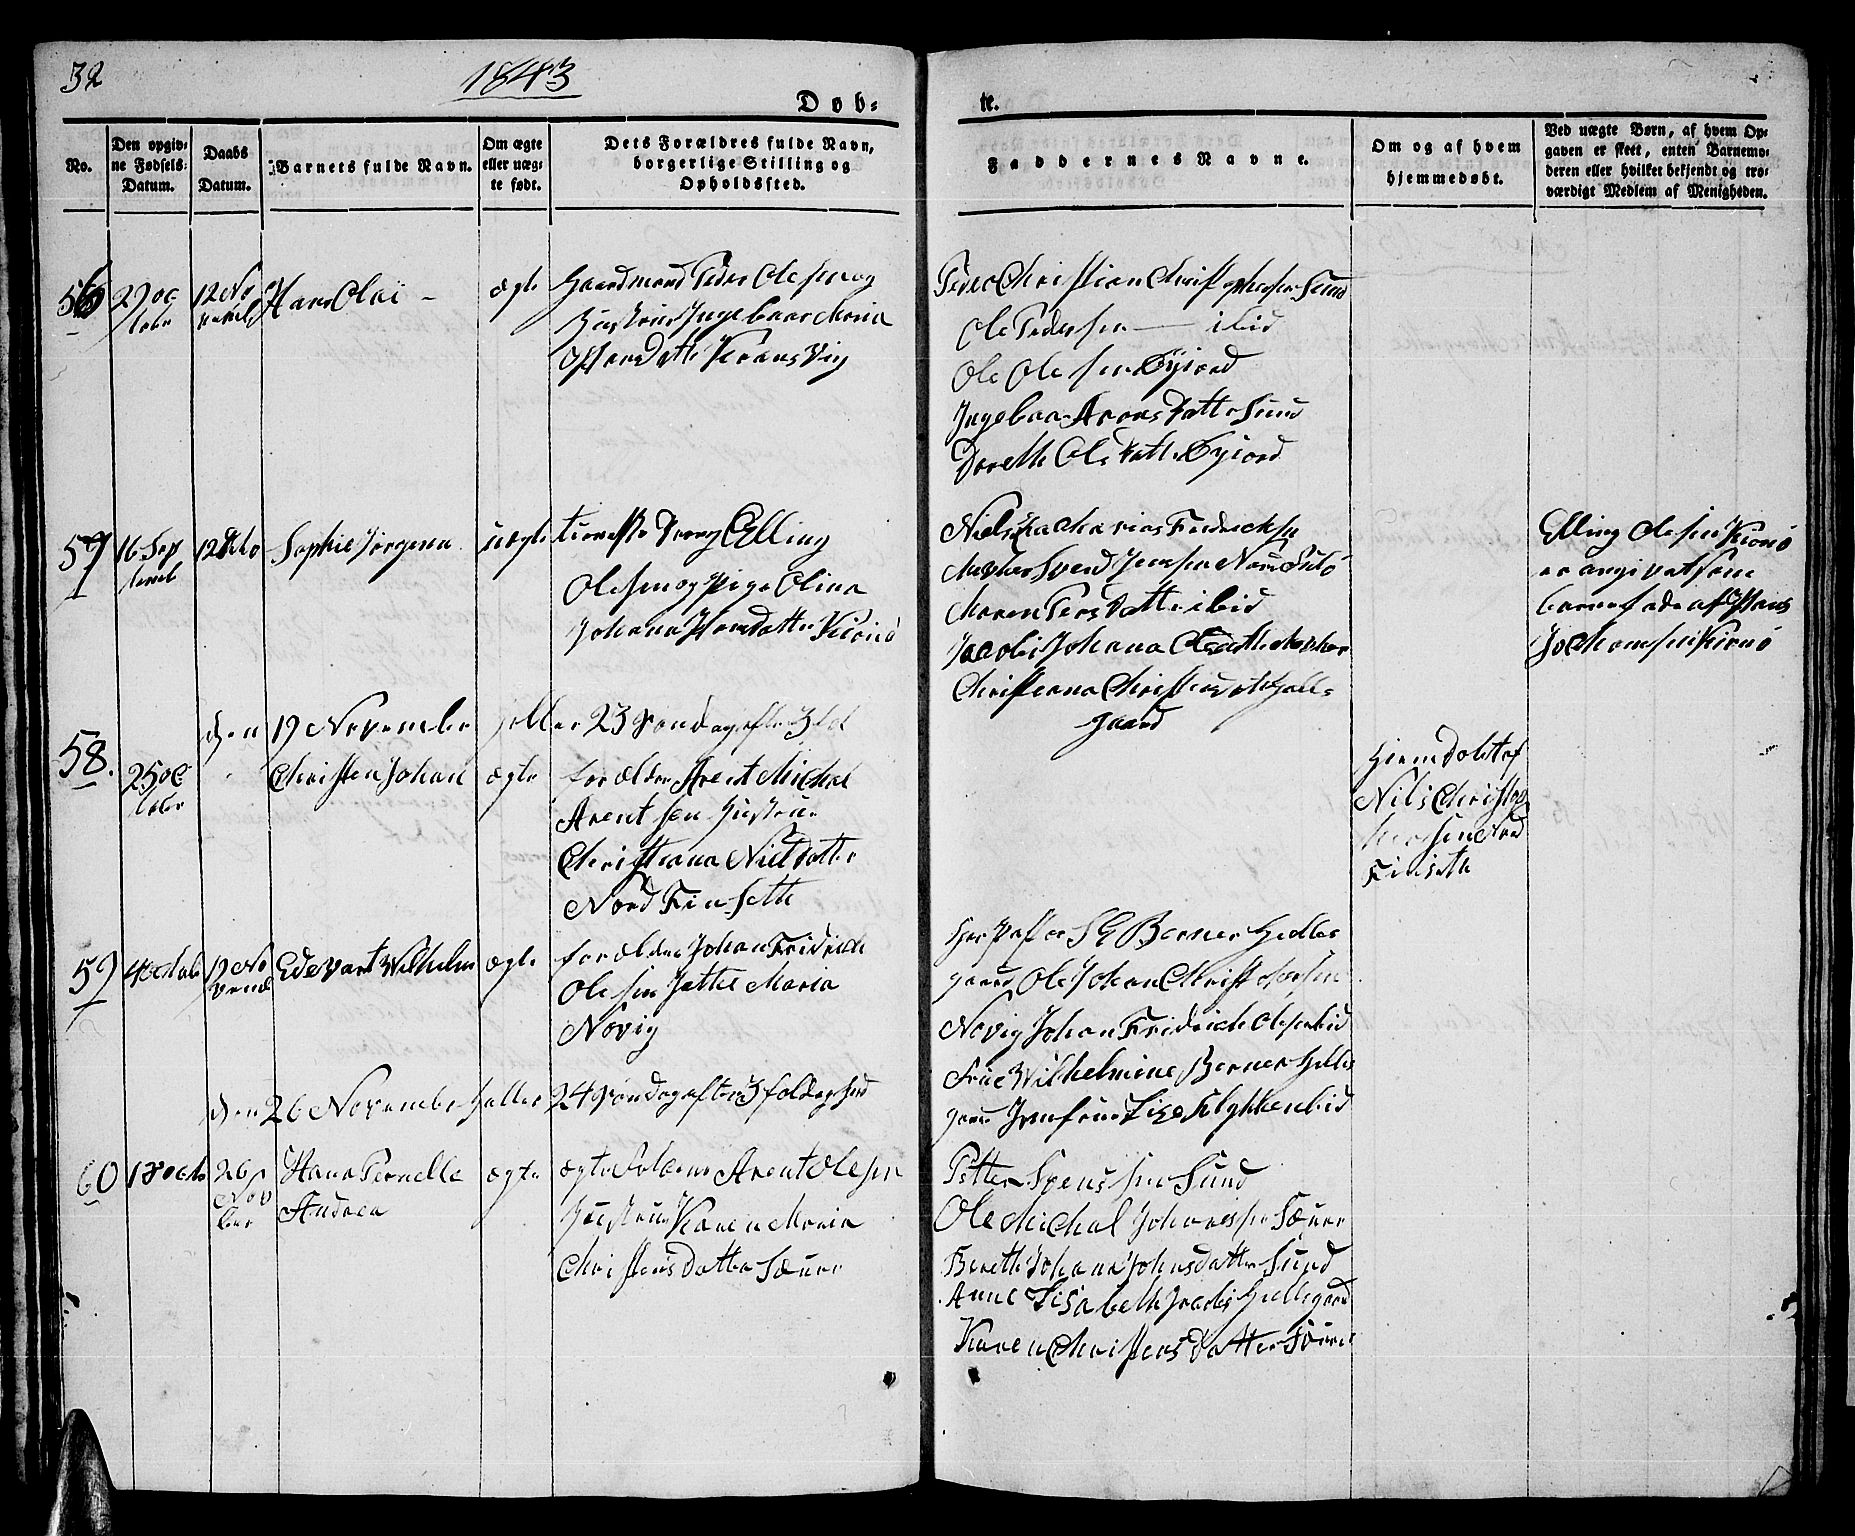 32
1843
Døb-
te.
No.
Den opgiv-
ne Fødsels-
Datum.
Daabs
Datum.
Barnets fulde Navn.
Om ægte
eller uæg-
te født.
Dets Forældres fulde Navn,
borgerlige Stilling og
Opholdssted.
Faddernes Navne.
Om og af hvem
hjemmedøbt.
Ved uægte Børn, af hvem Op-
gaven er skeet, enten Barnemo-
deren eller hvilket bekjendt og tro-
værdigt Medlem af Menigheden.
56
29 oc
tobr
12 No
Hans Olai -
ægte
Gaardmand Peder Olesen og
Hustrue Ingebaar Maria
Hans Datter
Peder Christian Christophersen Sund
Ole Pedersen — ibid
Ole Olesen Øyjord
Ingebaar Arons Datter Sund
Dorethe Ols Datter Øyjord
57
16 Sep
tembr
12 No
Sophie Jørgena
uægte
tieneste Dreng Elling
Olesen og Pige Olina
Johana Hans datter Kionø
Niels Zacharias Fredriksen
Svend Jensen
Maren Pers Datter ibid
Jacobi Johana
Christiana
gaard
Elling Olesen Kionø
er angivet som
barnefader af Hans
Jochomsen Kionø
den 19 November heller 23 Søndag efter 3fol
58.
25 oc
tobr
Christen Johan
ægte
forældre Arent Michal
Arentsen Hustrue
Christiana Nielsdatter
Nord Finsethe
Hiemdøbt af
Nils Christop
hersen Nord
Finsethe
59
4 octob
19 No
vemb
Edevart Wilhelm
ægte
forældre Johan Fridrich
Olesen Jethe Maria
Novig
Her S G Berner Helle
gaard Ole Johan Christophersen
Novig Johan Fridrich Olsen ibid
Frue Wilhelmine Berner Helle
gaard Jomfrue Lise ibid
den 26 November heller 24 Søndag efter 3foldeghed
60
18 octo
26
Nov
ber
Hana Pernelle
Andrea
ægte
ægte Folkene Arent Olesen
Hustrue Karen Maria
Christens Datter
Petter Svensen Sund
Ole Michal Johanessen
Berethe Johana Johnsdatter Sund
Anne Lisabeth Jacobs Hellegaard
Karen Christens Datter